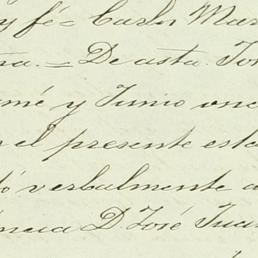 y fé = Carlos Mar
ra. = De asta. Jos
amé y Junio once
n el presente este
dó verbalmente a
encia D. José Juan